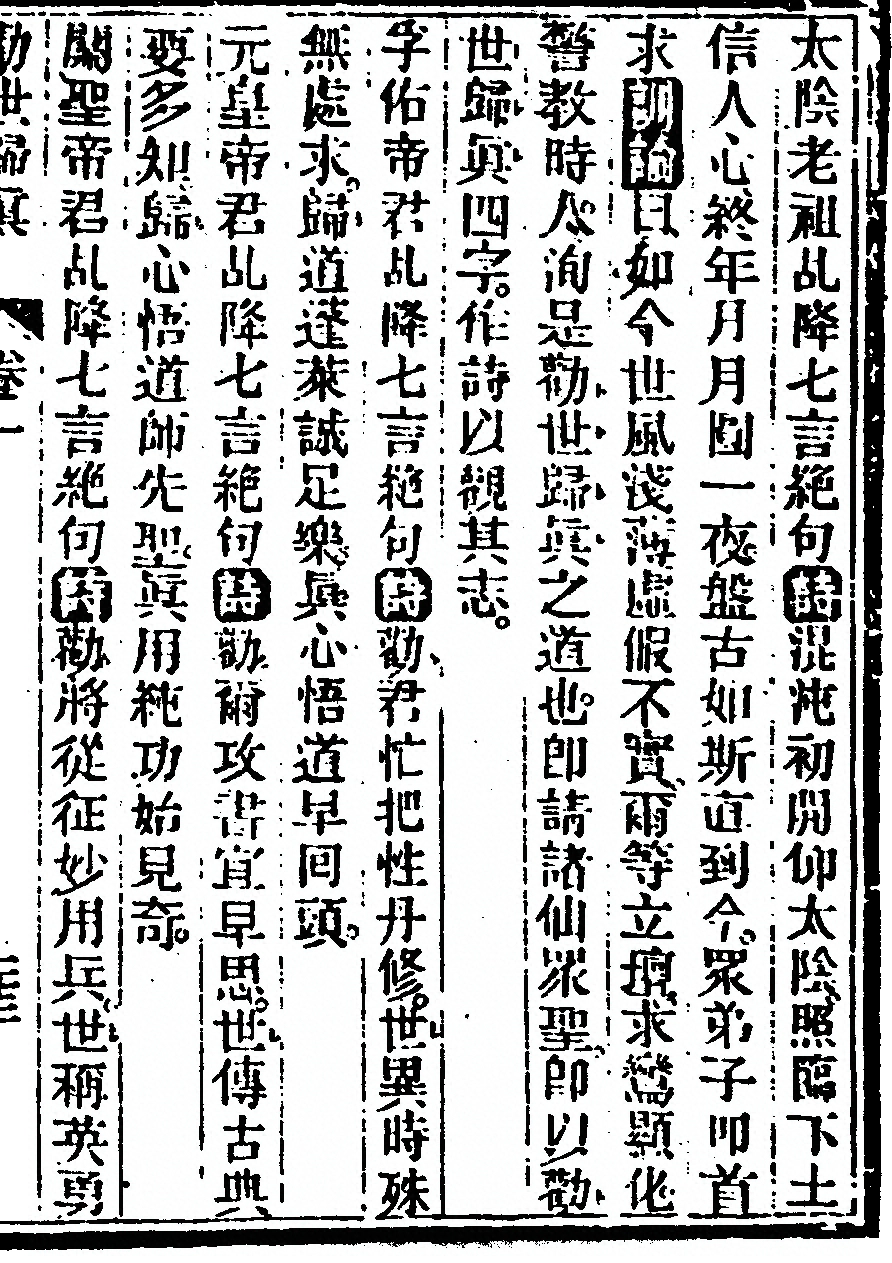 太陰老祖乩降七言絶句詩混沌初開仰太陰照臨下土
信人心終年月月圓一夜盤古如斯直到今衆弟子叩首
求明諭曰如今世風淺薄虛假不實爾等立壇求鸞顯化
警教時人洵是勸世歸眞之道也卽請諸仙衆聖卽以勸
世歸眞四字作詩以觀其志
孚佑帝君乩降七言絶句詩勸君忙把性丹修世異時殊
無處求歸道蓬萊誠足樂眞心悟道早回頭
元皇帝君乩降七言絶句詩勸爾攻書宜早思世傳古典
要多知歸心悟道師先聖眞用純功始見奇
關聖帝君乩降七言絶句詩勸將從征妙用兵世稱英勇
勸世歸眞 卷一